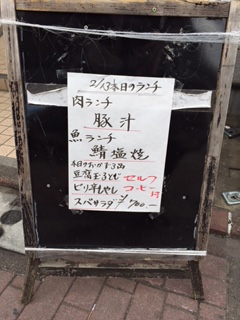 2/13本日のランチ
肉ランチ
豚汁
魚ランチ
鯖塩焼
本日のおかず3品
豆腐玉子とじ
セルフ
ピリ辛もやし
コーヒー付
スパサラダ
700ー